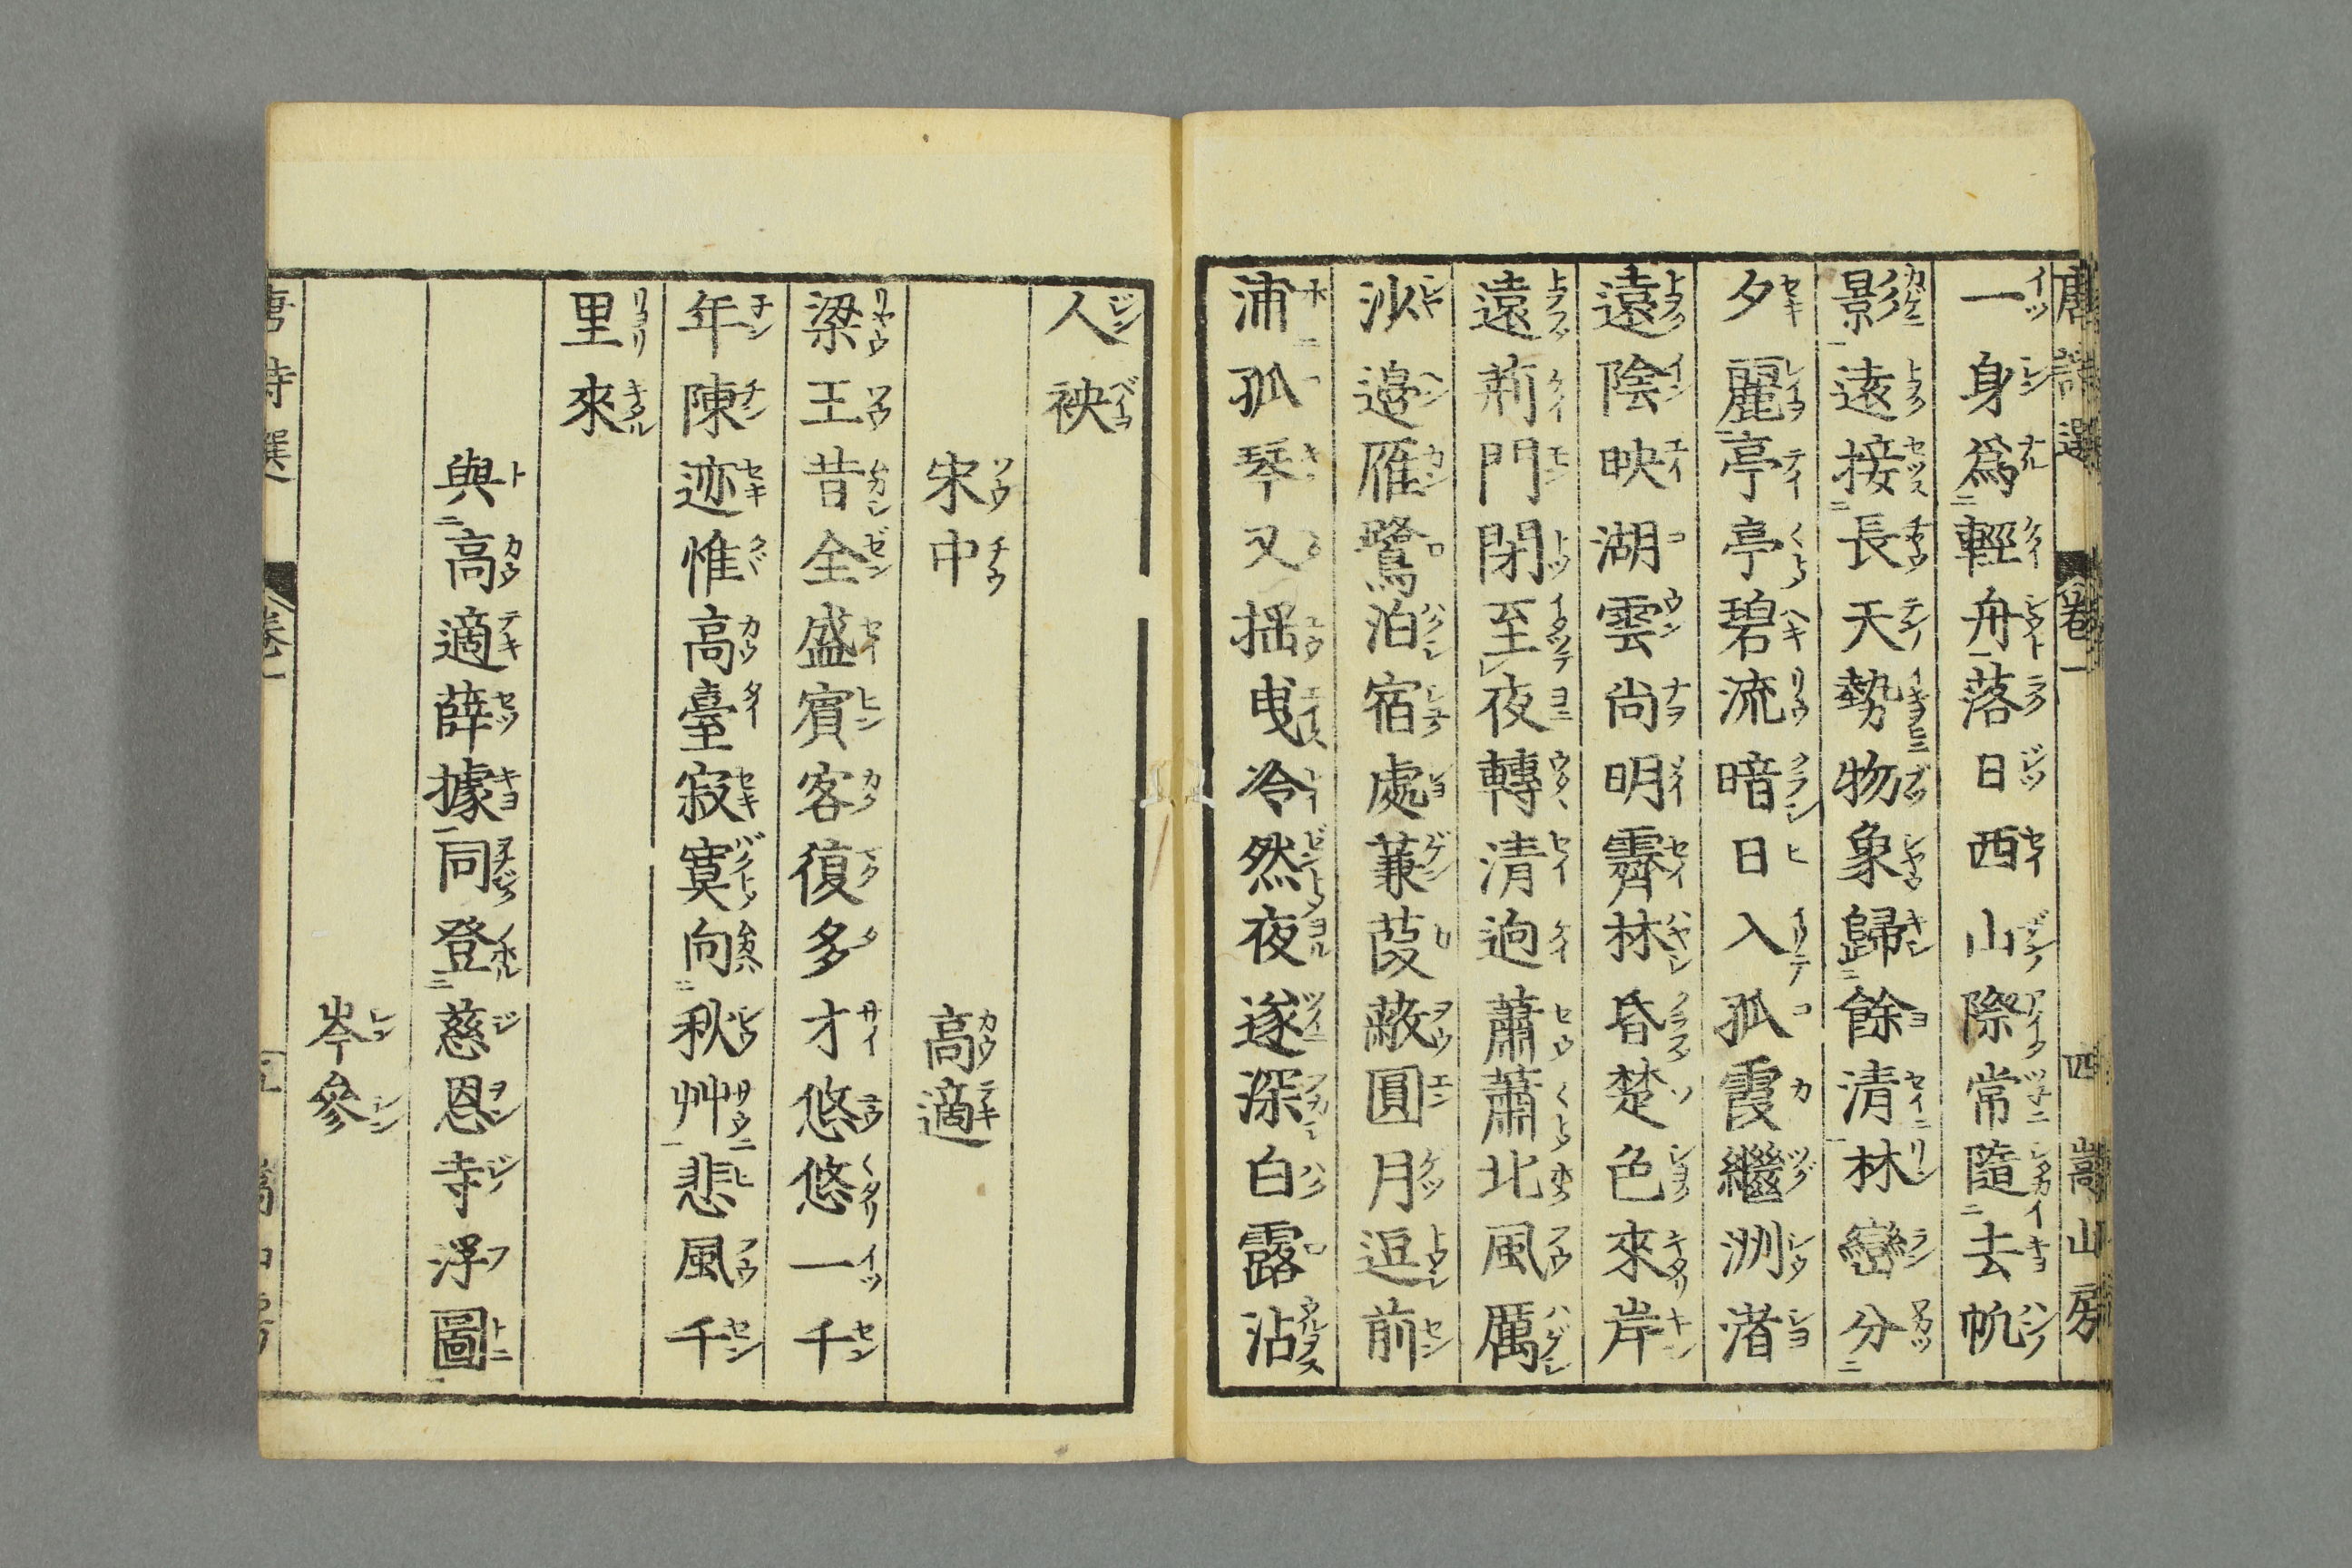 唐詩選 卷一 四 嵩山房
一身爲輕舟落日西山際常隨去帆
影遠接長天勢物象歸餘清林巒分
夕麗亭亭碧流暗日入孤霞繼洲渚
遠陰映湖雲尚明霽林昏楚色來岸
遠荊門閉至夜轉清逈蕭蕭北風厲
沙邊雁鷺泊宿處蒹葭蔽圓月逗前
浦孤琴又搖曳冷然夜遂深白露沾
人袂
宋中 高適
梁王昔全盛賓客復多才悠悠一千
年陳迹惟高臺寂寞向秋艸悲風千
里來
與高適薛據同登慈恩寺浮圖
岑參
唐詩選 卷一 五 嵩山房